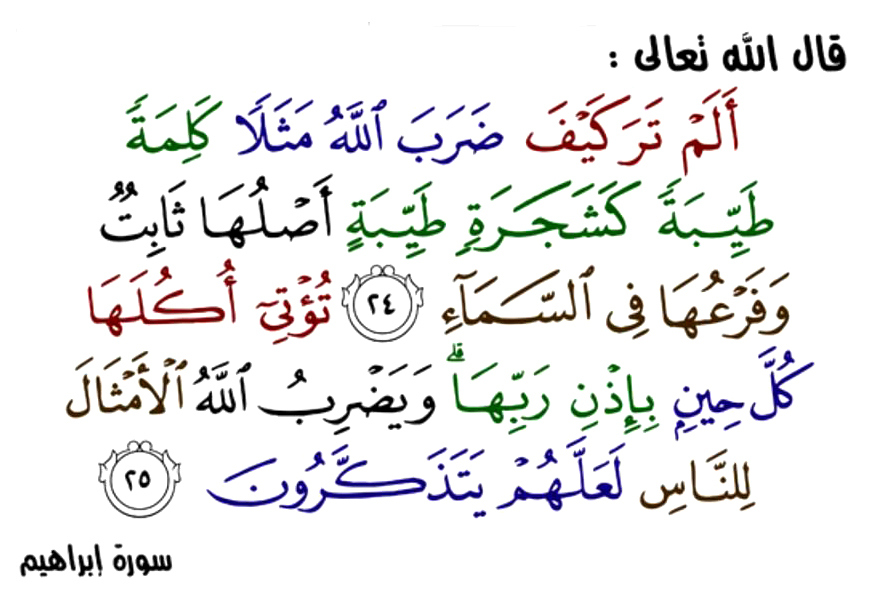 قال الله تعالى :
أَلَمۡ تَرَ كَيۡفَ ضَرَبَ ٱللَّهُ مَثَلٗا كَلِمَةٗ
طَيِّبَةٗ كَشَجَرَةٖ طَيِّبَةٍ أَصۡلُهَا ثَابِتٞ
وَفَرۡعُهَا فِي ٱلسَّمَآءِ ٢٤ تُؤۡتِيٓ أُكُلَهَا
كُلَّ حِينِۭ بِإِذۡنِ رَبِّهَاۗ وَيَضۡرِبُ ٱللَّهُ ٱلۡأَمۡثَالَ
لِلنَّاسِ لَعَلَّهُمۡ يَتَذَكَّرُونَ ٢٥
سورة إبراهيم